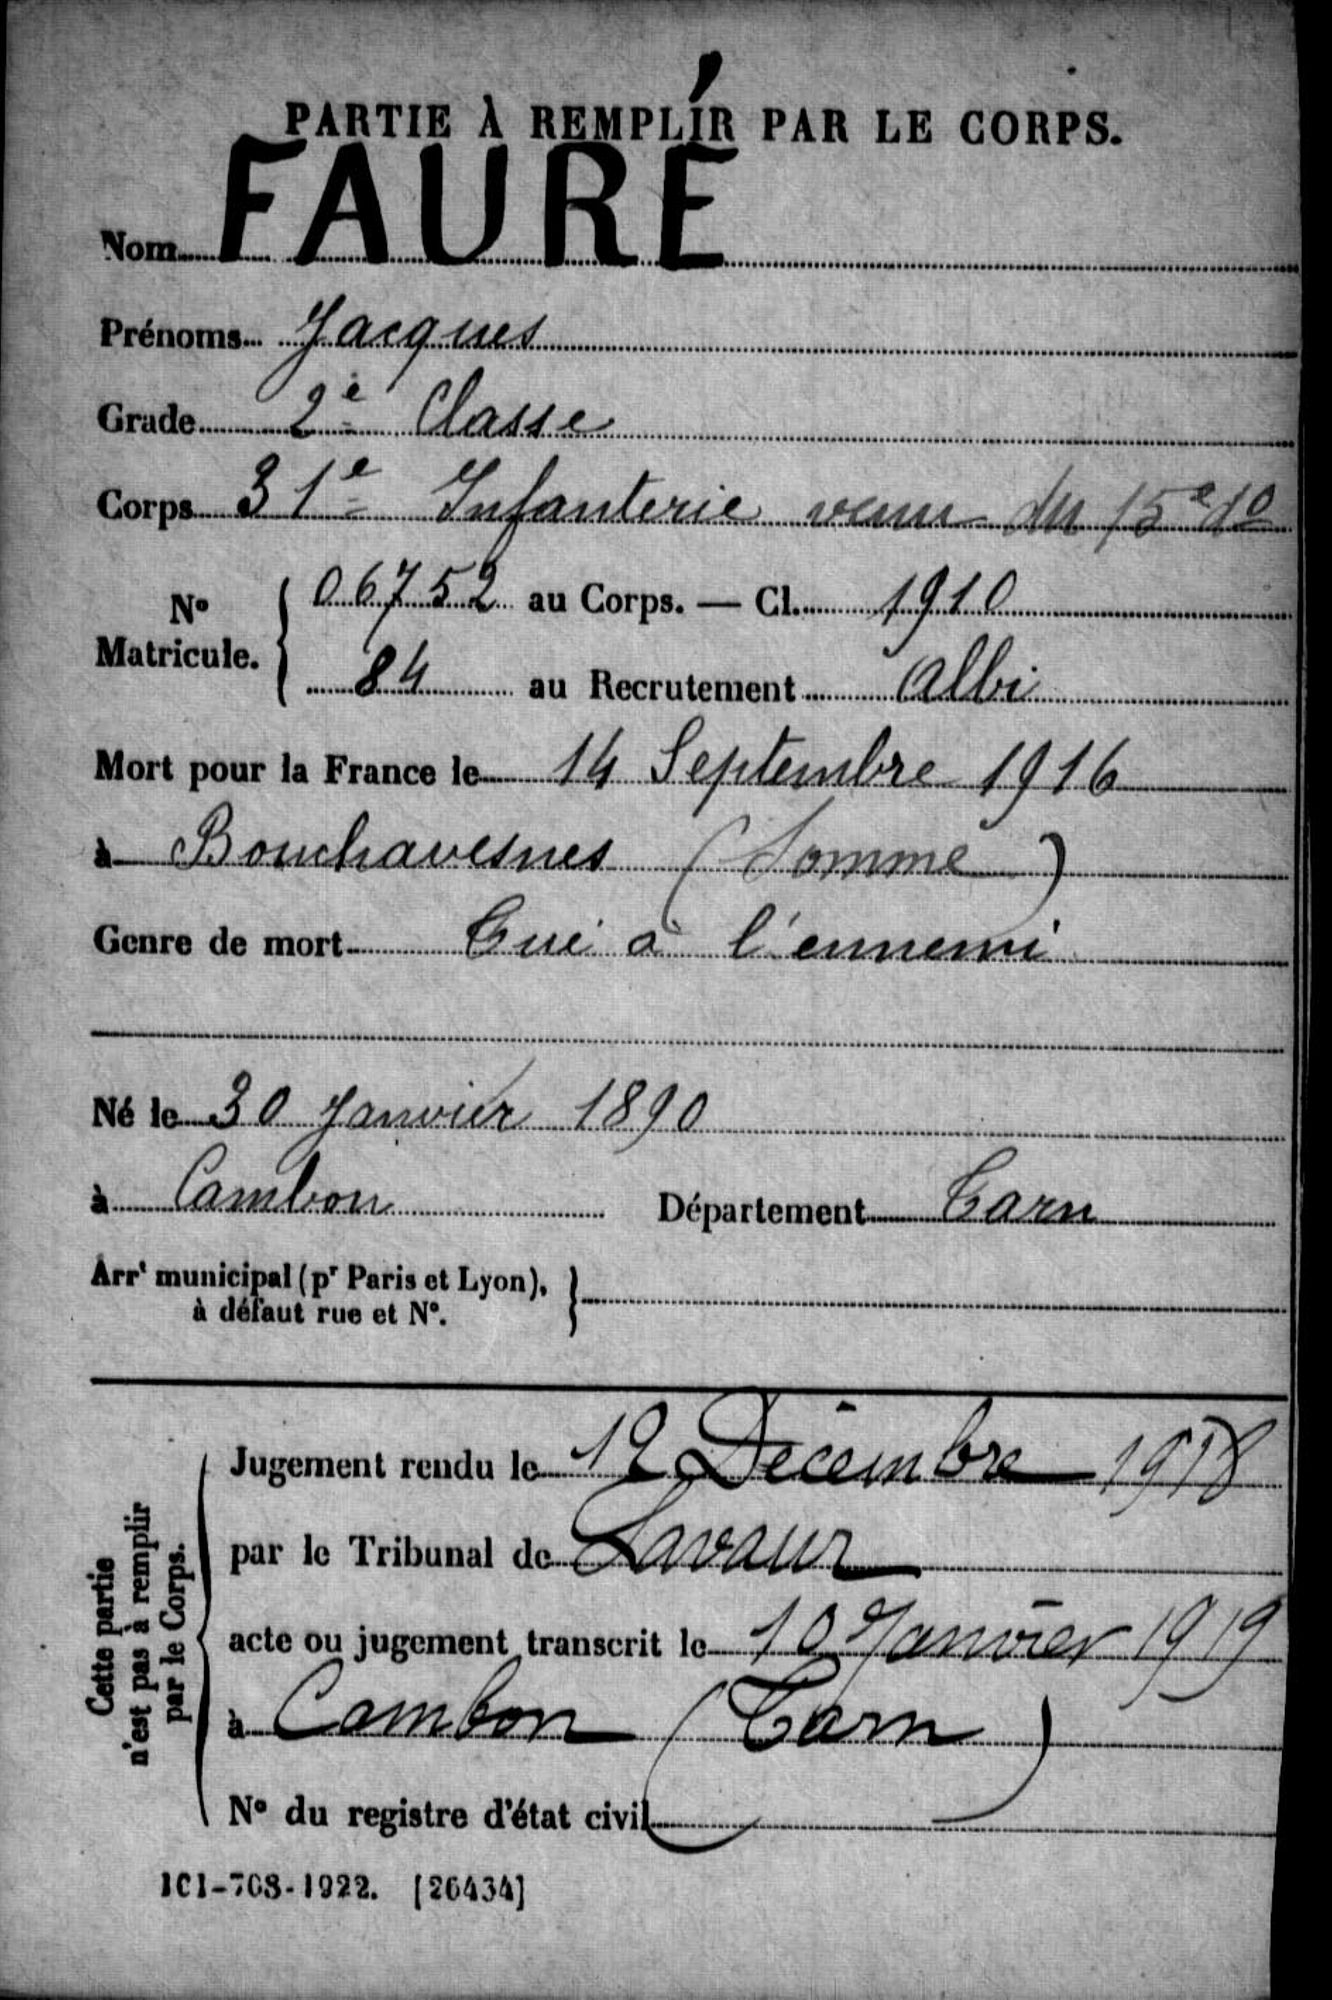 PARTIE À REMPLIR PAR LE CORPS.
Nom FAURÉ
Prénoms Jacques
Grade 2e Classe
Corps 31e Infanterie venu du 15e do
No Matricule. { 06752 au Corps. — Cl. 1910
84 au Recrutement Albi
Mort pour la France le 14 Septembre 1916
à Bouchavesnes (Somme)
Genre de mort Tué à l'ennemi
Né le 30 Janvier 1890
à Cambon Département Tarn
Arrt municipal (pr Paris et Lyon), }
à défaut rue et No.
Cette partie
n'est pas à remplir
par le Corps.
Jugement rendu le 12 Décembre 1918
par le Tribunal de Lavaur
acte ou jugement transcrit le 10 Janvier 1919
à Cambon (Tarn)
No du registre d'état civil
101-708-1922. [26434]